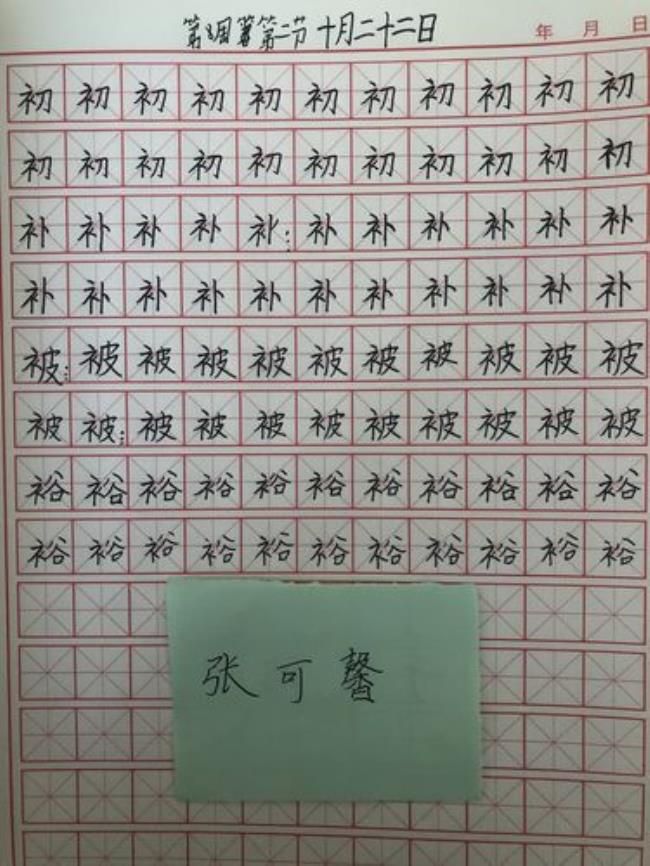 第8周第二节 十月二十二日
年 月 日
初初初初初初初初初初初
初初初初初初初初初初初
补补补补补补补补补补补
补补补补补补补补补补补
被被被被被被被被被被被
被被被被被被被被被被被
裕裕裕裕裕裕裕裕裕裕裕
裕裕裕裕裕裕裕裕裕裕裕
张可馨